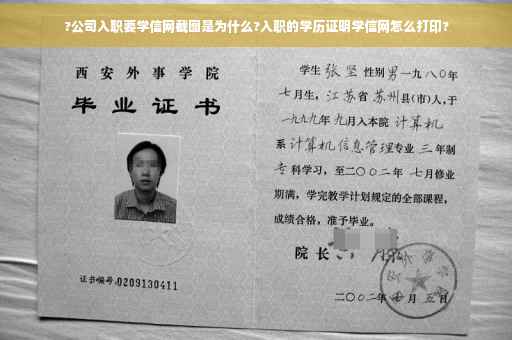 ?公司入职要学信网截图是为什么?入职的学历证明学信网怎么打印?
西安外事学院
毕业证书
证书编号:0209130411
学生 张坚 性别 男 一九八〇年
七月生，江苏省 苏州 县(市)人,于
一九九九年 九月入本院 计算机
系 计算机信息管理 专业 三 年制
专 科学习，至二〇〇二年 七月修业
期满，学完教学计划规定的全部课程，
成绩合格，准予毕业。
院长
二〇〇二年 月 五日